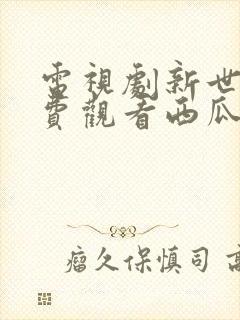 電視劇新世
費觀看西瓜
瘤久保慎司 高